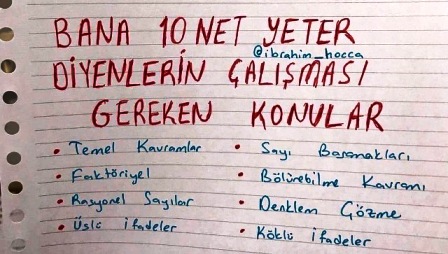 BANA 10 NET YETER
@ibrahim_hocca
DİYENLERİN ÇALIŞMASI
GEREKEN KONULAR
• Temel Kavramlar
• Faktöriyel
• Rasyonel Sayılar
• Üslü İfadeler
• Sayı Basamakları
• Bölünebilme Kavramı
• Denklem Çözme
• Köklü İfadeler